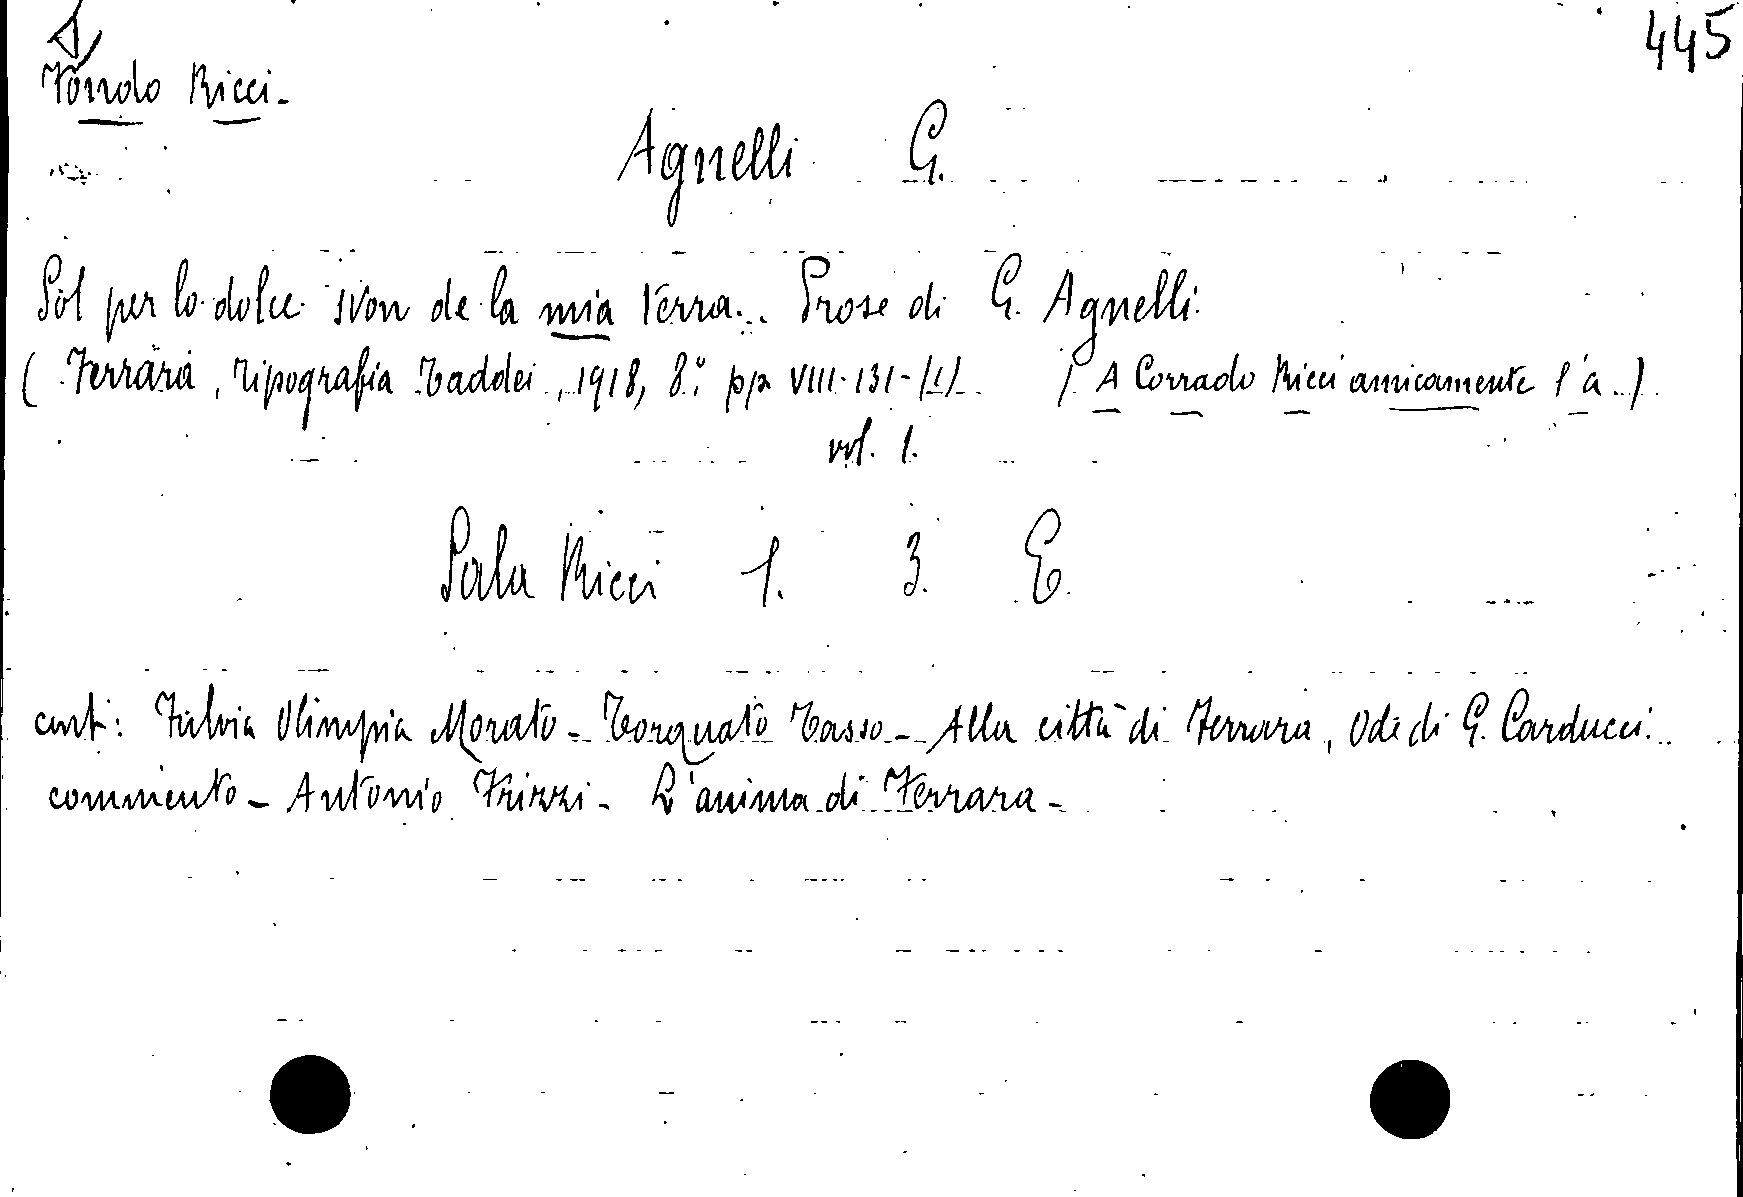 445
Fondo Ricci.
Agnelli G.
Sol per lo dolce suon de la mia terra... Prose di G. Agnelli.
(Ferrara, Tipografia Taddei, 1918, 8.° pp. VIII-131-[1] (A Corrado Ricci amicamente l'a.)
vol. 1.
Sala Ricci 1. 3. E.
cont: Fulvia Olimpia Morato - Torquato Tasso - Alla città di Ferrara, Ode di G. Carducci.
commento - Antonio Frizzi - L'anima di Ferrara -